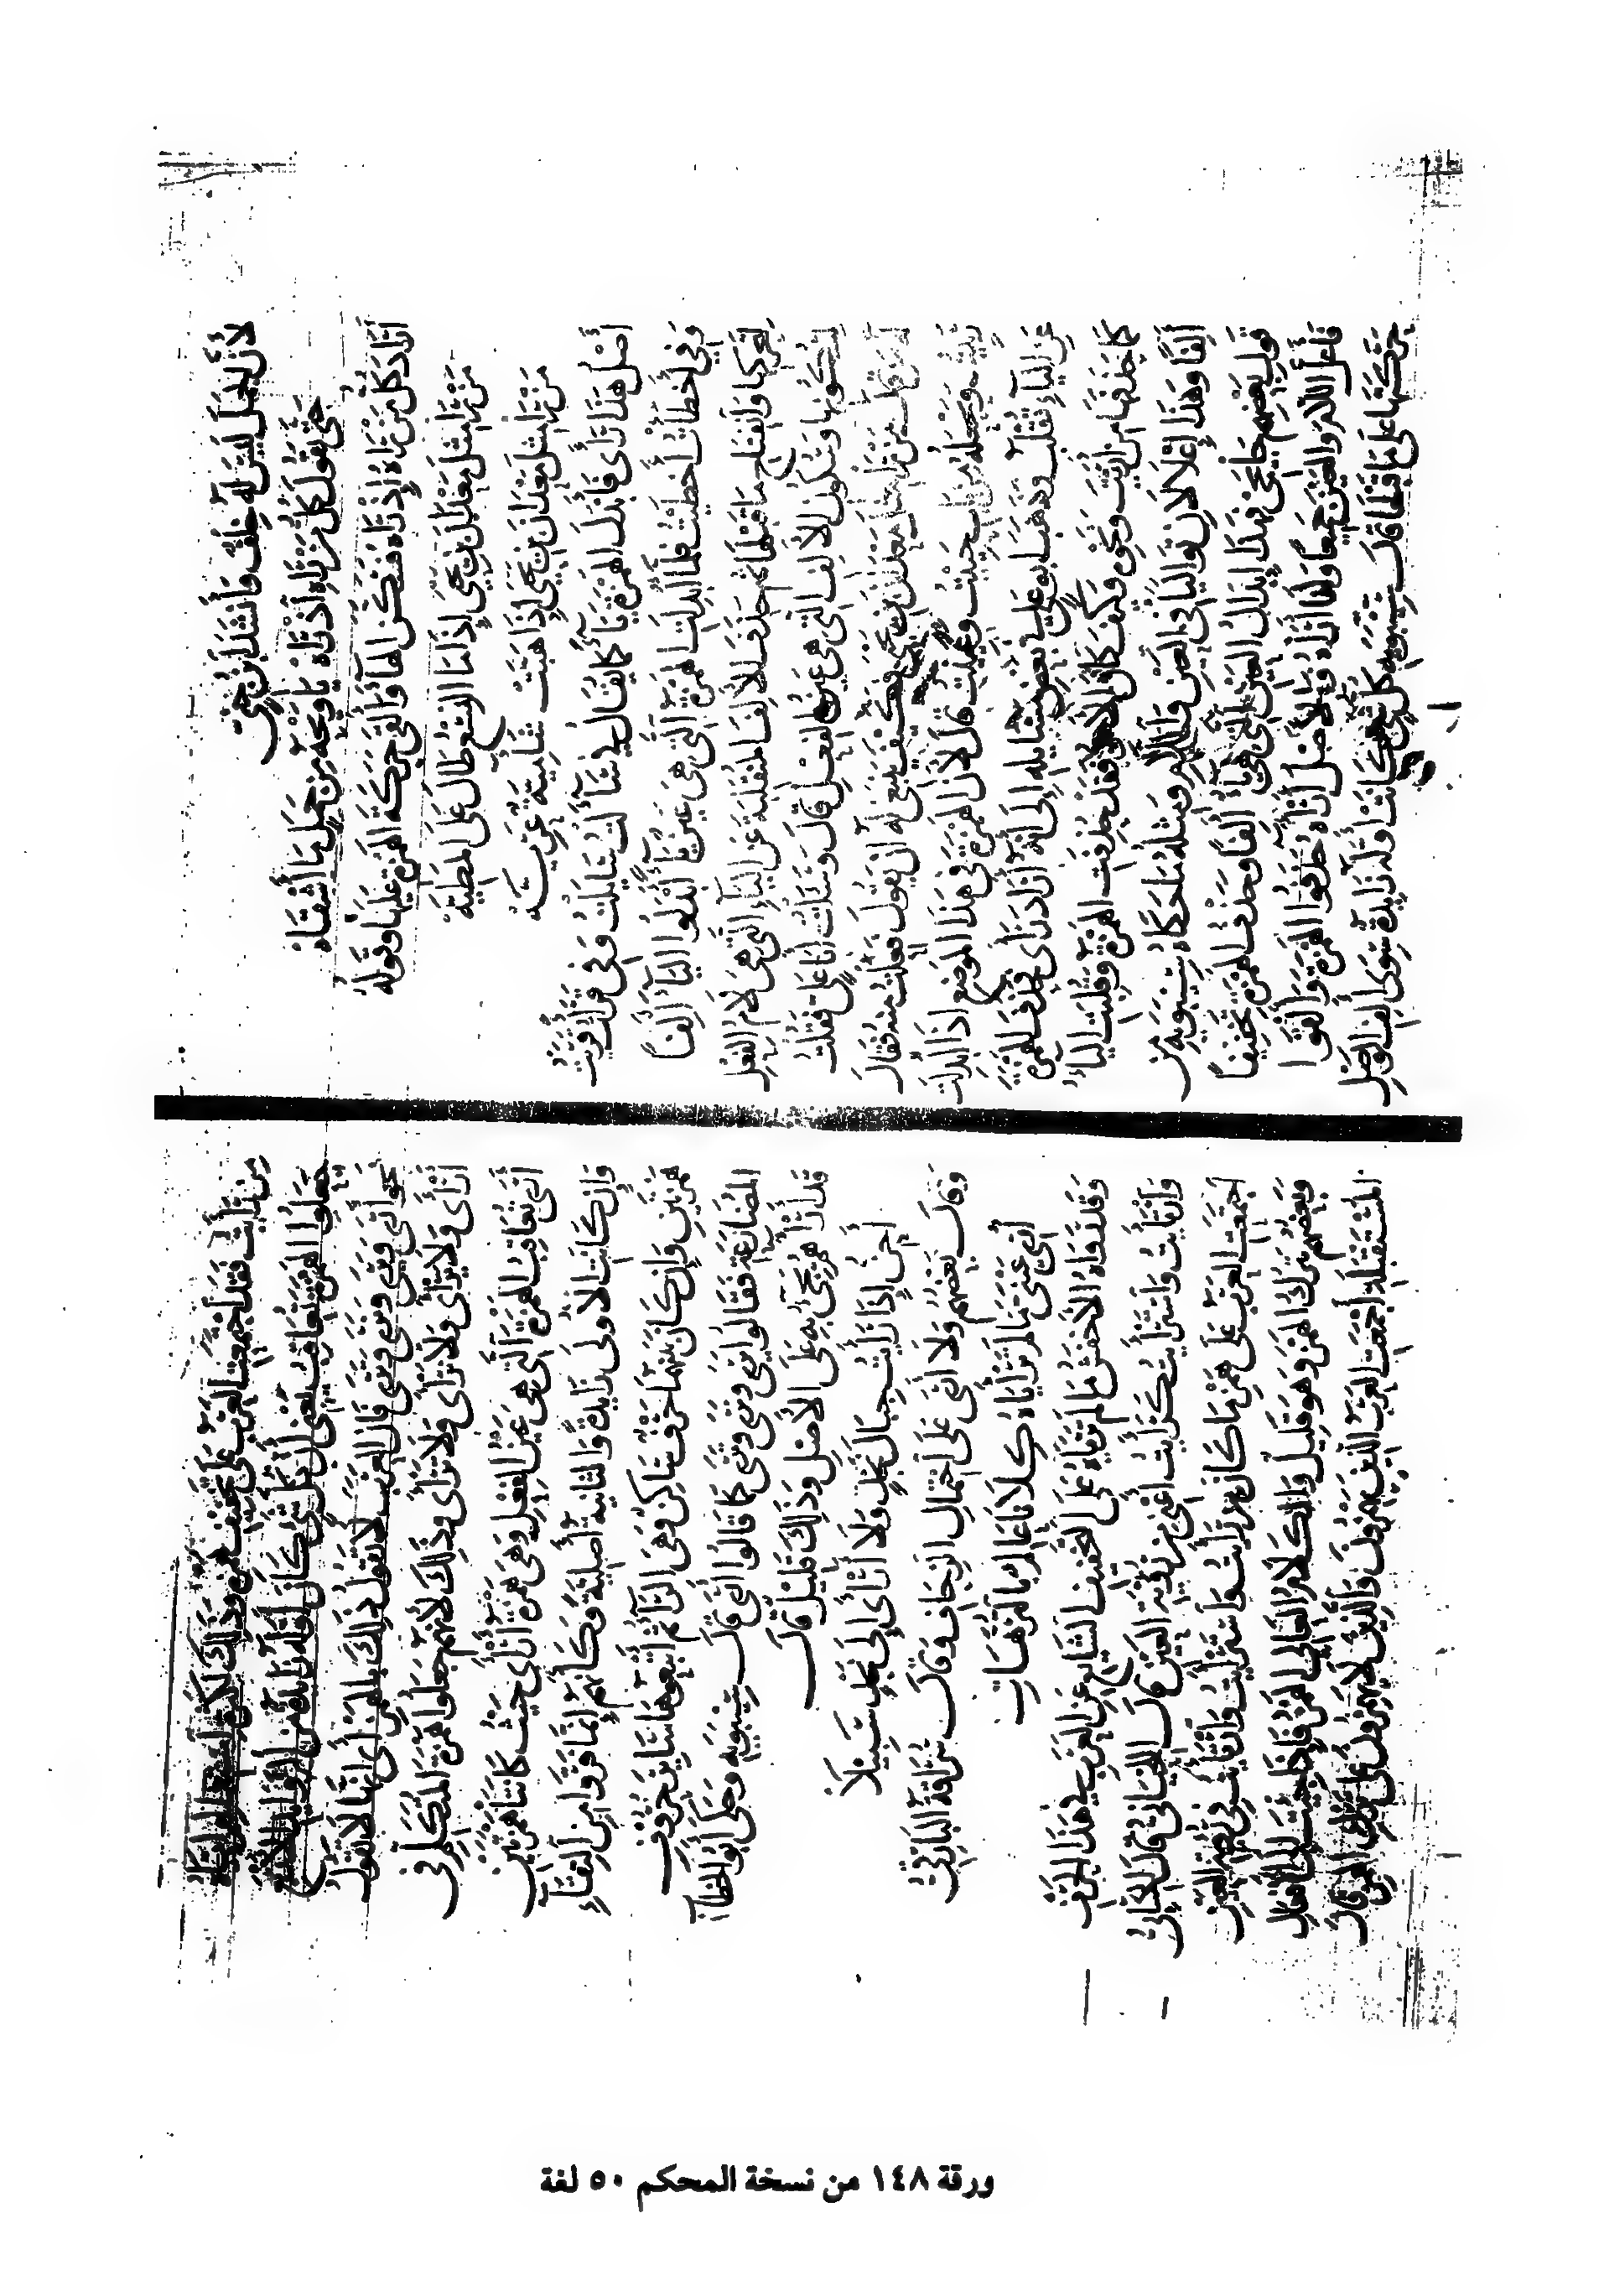 لأن الجمل ليس له خلف وأنشد ابن جني
حتى يقول كل من رآه إذ رآه يا ويحه من جمل ما أشقاه
أراد كل من رآه إذ رآه فسكن الهاء وألقى حركة الهمزة عليها وقوله
من را مثل معدان بن يحيى إذا ما النسع طال على المطية
من را مثل معدان بن يحيى إذا هبت شآمية عرية
أصل هذا رأى فأبدل الهمزة ياء كما يقال في سألت سايلت وفي قرأت قريت
وفي أخطأت أخطيت فلما أبدلت الهمزة التي هي عين ياء أبدلوا الياء ألفا
لتحركها وانفتاح ما قبلها ثم حذف الألف المنقلبة عن الياء التي هي لام الفعل
لسكونها وسكون الألف التي هي عين الفعل قال وسألت أبا علي فقلت
له من قال من را مثل معدان بن يحيى فكيف ينبغي له أن يقول فعلت منه فقال
رييت ويجعله من باب حييت وعييت قال لأن الهمزة في هذا الموضع إذا أبدلت
عن الياء تقلب وذهب أبو علي في بعض مسائله إلى أنه أراد رأى فحذف الهمزة
كما حذفها من أريت ونحوه وكيف كان الأمر فقد حذفت الهمزة وقلبت الياء
ألفا وهذا إعلالان تواليا في العين واللام ومثله ما حكاه سيبويه من
قول بعضهم جا يجي فهذا إبدال العين التي هي ياء ألفا وحذف الهمزة تخفيفا
فأعل اللام والعين جميعا وأنا أراه والأصل أرآه حذفوا الهمزة وألقوا
حركتها على ما قبلها قال سيبويه كل شيء كانت أوله زائدة سوى ألف الوصل
من رأيت فقد اجتمعت العرب على تخفيف همزه وذلك لكثرة استعمالهم إياه
جعلوا الهمزة تعاقب يعني أن كل شيء كان أوله زائدة من الزوائد الأربع
نحو أرى وترى ونرى ويرى فإن العرب لا تقول ذلك بالهمز أي أنها لا تقول
أرأى ولا يرأى ولا نرأى ولا ترأى وذلك لأنهم جعلوا همزة المتكلم في
أرى تعاقب الهمزة التي هي عين الفعل وهي همزة أرأى حيث كانتا همزتين
وإن كانت الأولى زائدة والثانية أصلية وكأنهم إنما فروا من التقاء
همزتين وإن كان بينهما حرف ساكن وهي الراء ثم أتبعوها سائر حروف
المضارعة فقالوا يرى ونرى وترى كما قالوا أرى قال سيبويه وحكى أبو الخطاب
قد أرآهم يجيء به على الأصل وذلك قليل قال
أحن إذا رأيت جبال نجد ولا أرأى إلى نجد سبيلا
وقال بعضهم ولا أرى على احتمال الزحاف وقال سراقة البارقي
أري عيني ما لم ترأياه كلانا عالم بالترهات
وقد رواه الأخفش ما لم ترياه على التخفيف الشائع عن العرب في هذا الحرف
وارتأيت واسترأيت كرأيت أعني من رؤية العين قال اللحياني قال الكسائي
اجتمعت العرب على همز ما كان من رأيت واسترأيت وارتأيت في رؤية العين
وبعضهم يترك الهمز وهو قليل والكلام العالي الهمز فإذا جئت إلى الأفعال
المستقبلة أجمعت العرب الذين يهمزون والذين لا يهمزون على ترك الهمز قال
ورقة ١٤٨ من نسخة المحكم ٥٠ لغة